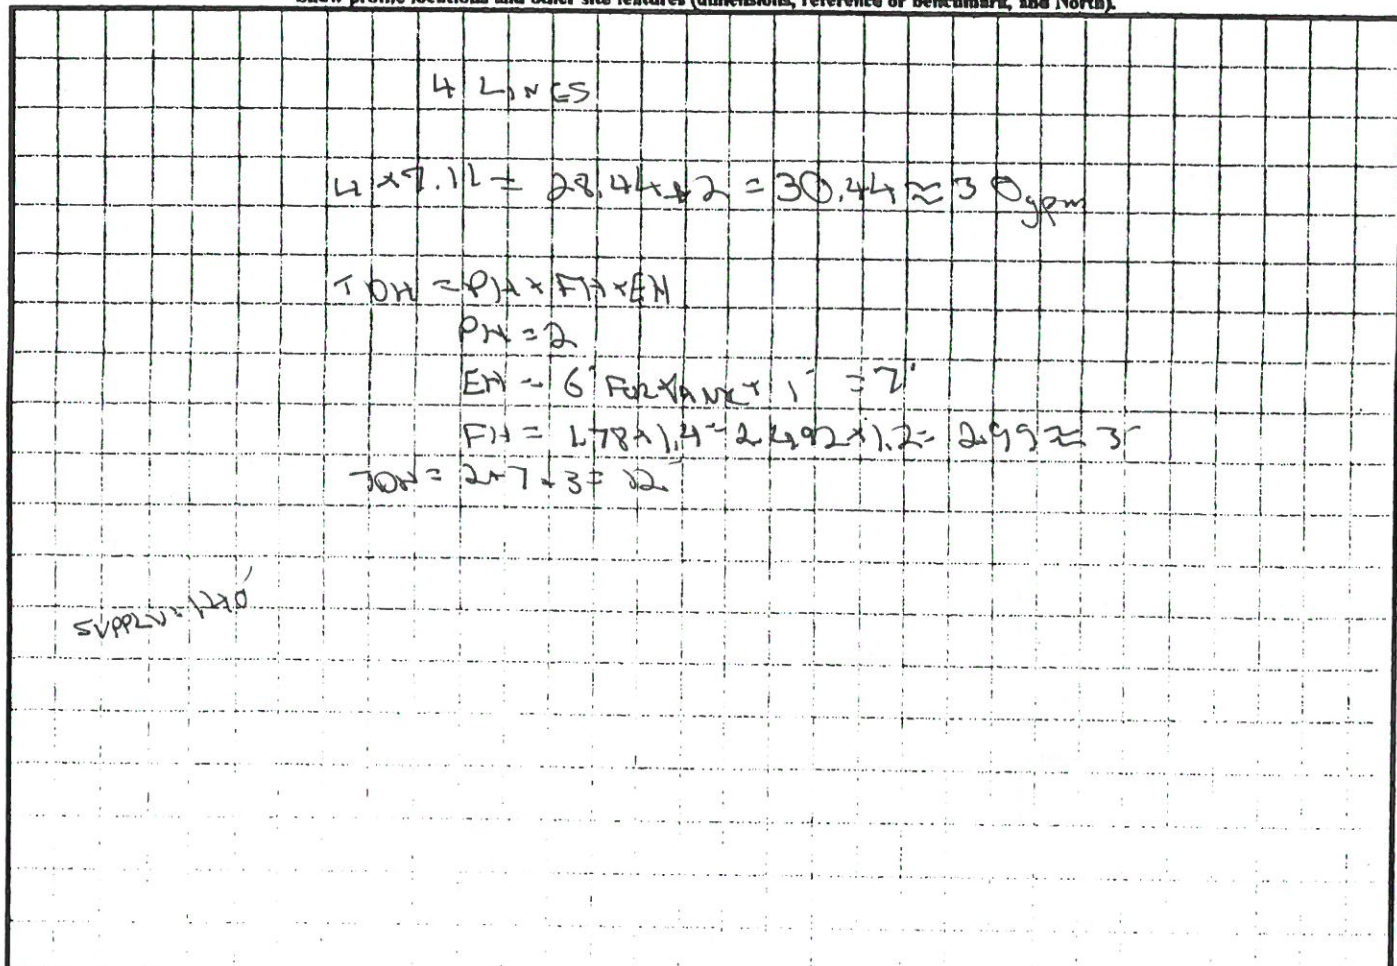 Show profile locations and other site features (dimensions, reference or benchmark, and North).
4 LINES
4 × 7.11 = 28.44 + 2 = 30.44 ≈ 30 gpm
TDH = PH + FH + EH
PH = 2
EH = 6' FOR TANK + 1' = 7'
FH = 1.78 × 1.4 = 2.492 × 1.2 = 2.99 ≈ 3'
TDH = 2 + 7 + 3 = 12'
SUPPLY =